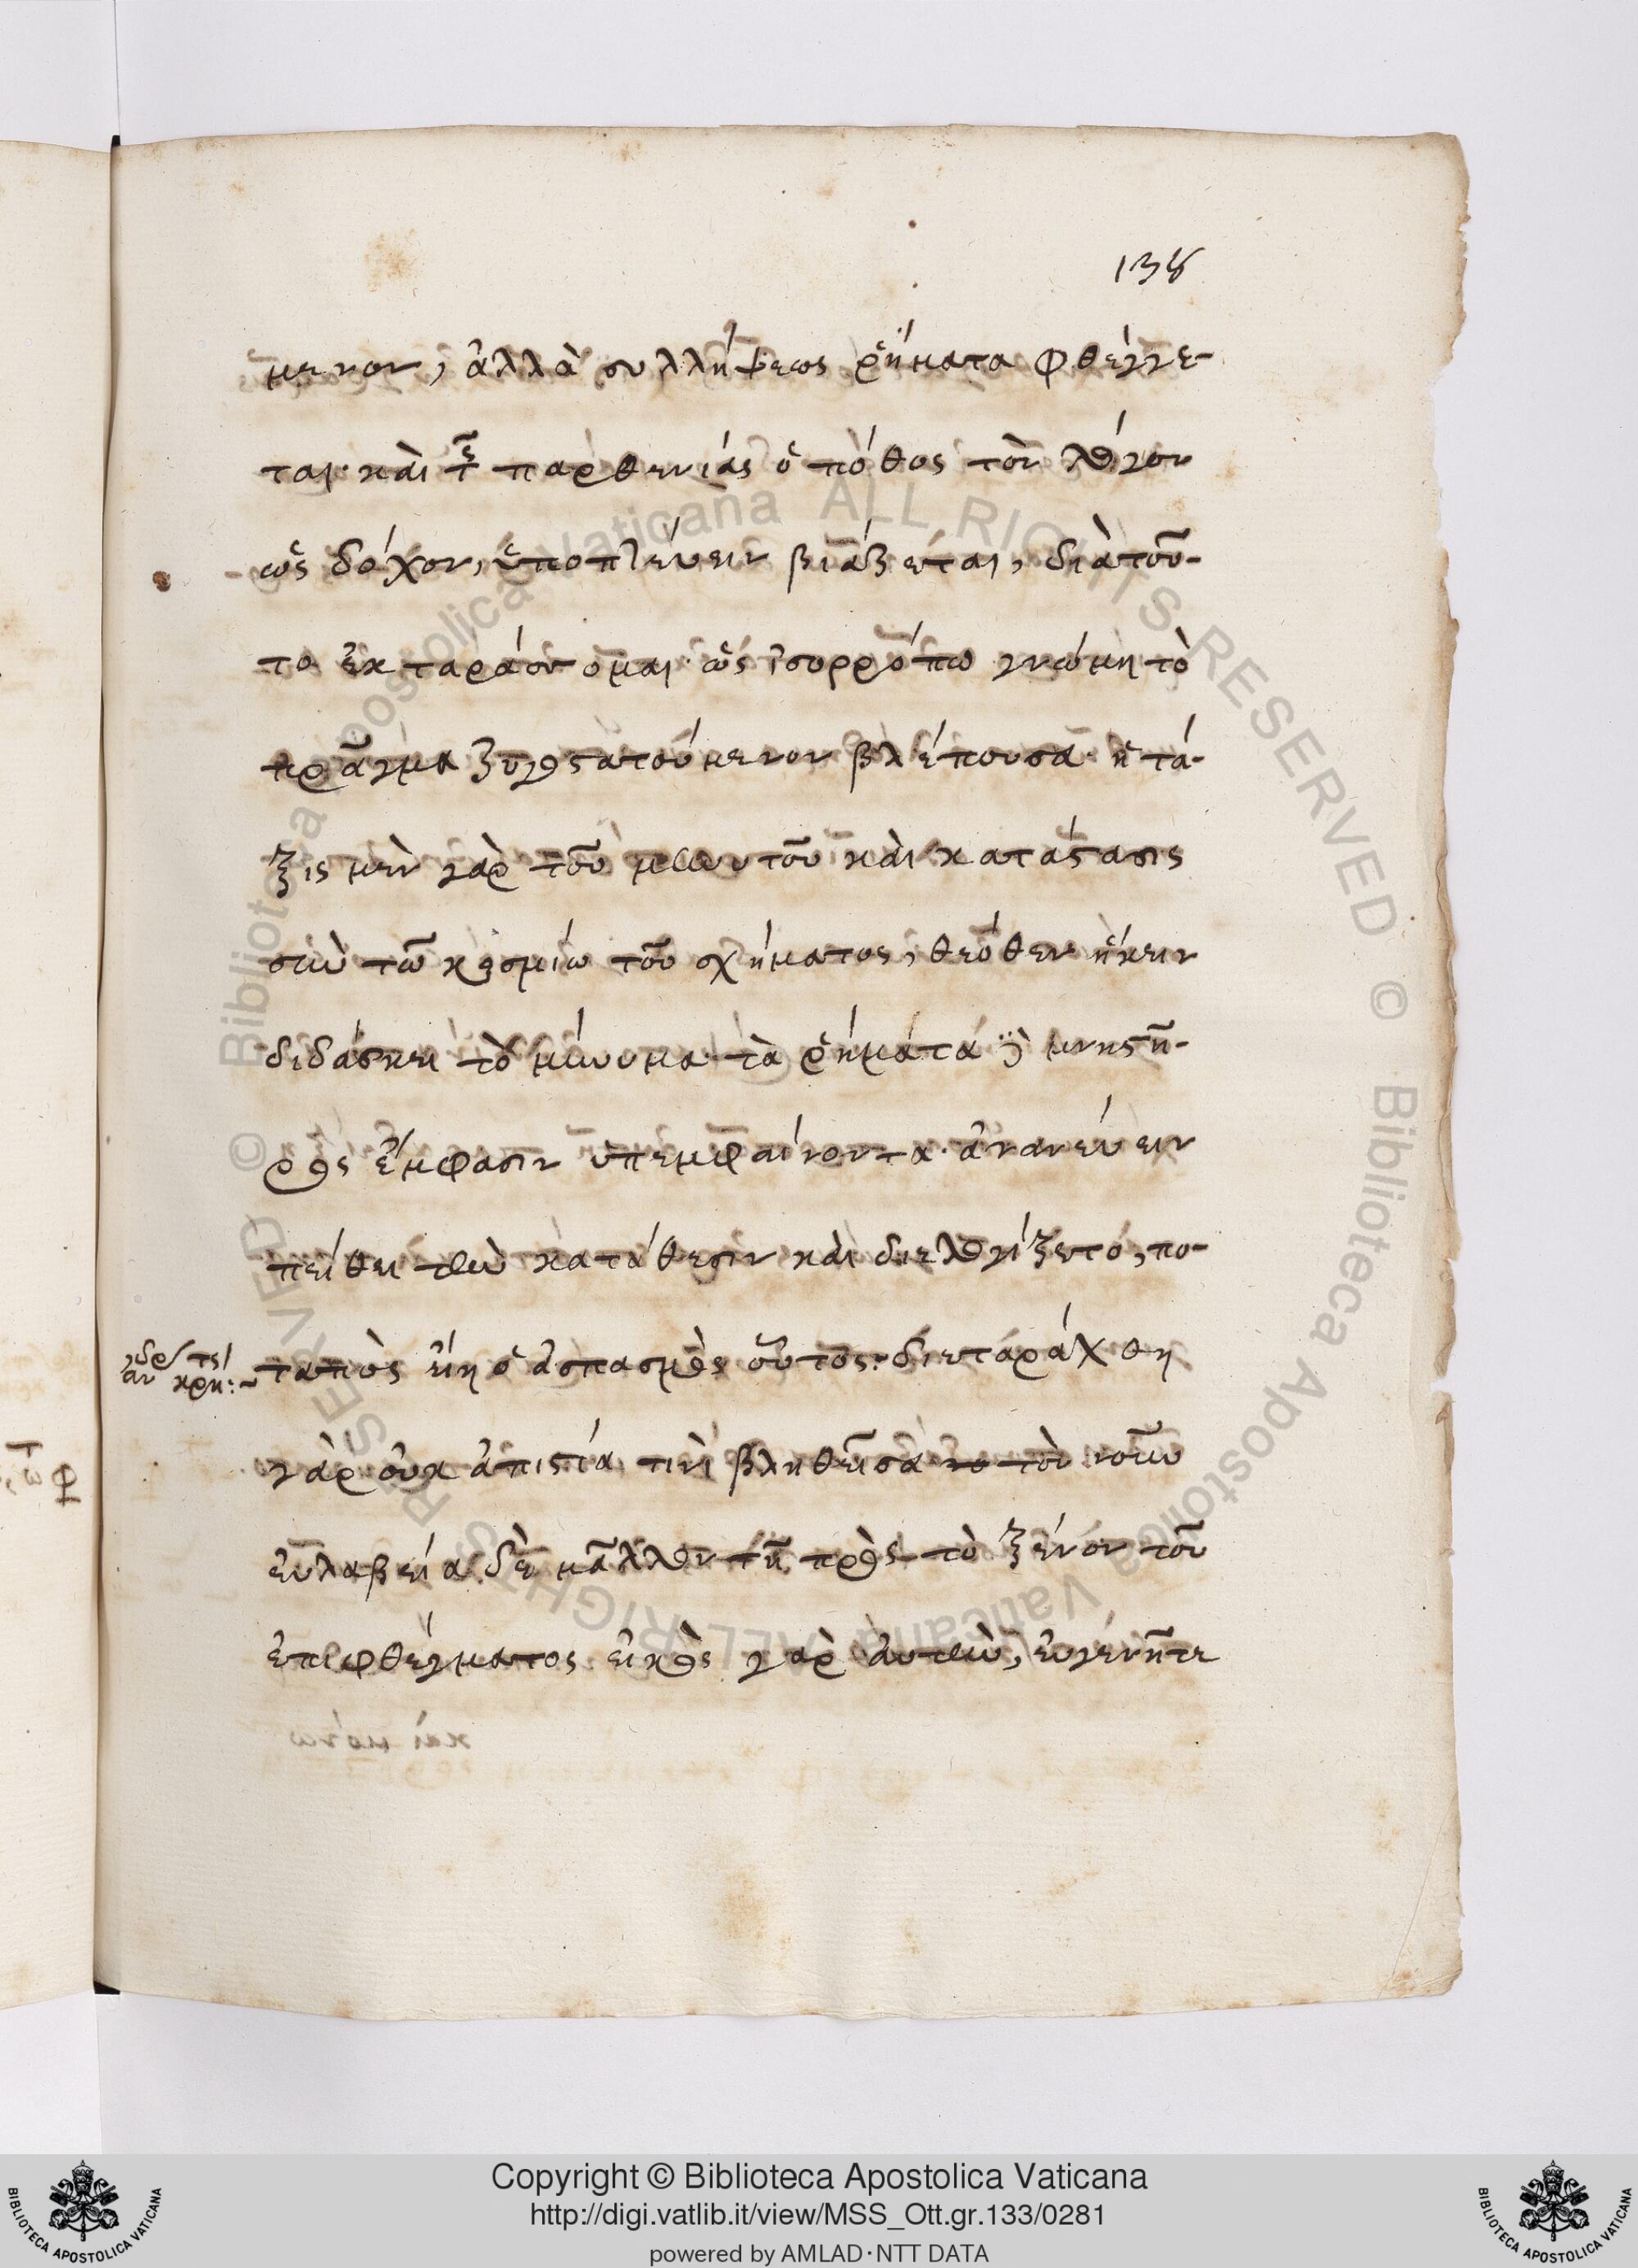 138
μενον, ἀλλὰ συλλήψεως ῥήματα φθέγγε-
ται· καὶ τῆς παρθενίας ὁ πόθος τὸν λόγον
ὡς δόχον, ὑποπτεύειν βιάζεται, διὰ τοῦ-
το ἐκταράσσομαι· ὡς ἰσορρόπω γνώμη τὸ
πρᾶγμα ζυγοστατούμενον βλέπουσα· ἡ τά-
ξις μὲν γὰρ τοῦ μηνυτοῦ καὶ κατάστασις
σὺν τῶ κοσμίω τοῦ σχήματος, θεόθεν ἥκειν
διδάσκει τὸ μήνυμα· τὰ ῥήματα δὲ μνηστῆ-
ρος ἔμφασιν ὑπεμφαίνοντα· ἀνανεύειν
πείθει τὴν κατάθεσιν καὶ διελογίζετο, πο-
ταπὸς εἴη ὁ ἀσπασμὸς οὗτος· διεταράχθη
γὰρ οὐκ ἀπιστία τινὶ βληθεῖσα τὸν νοῦν
εὐλαβεία δὲ μᾶλλον τῆ πρὸς τὸ ξένον τοῦ
ἐπιφθέγματος εἰκὸς γὰρ αὐτὴν, εὐγενῆ τε
Copyright © Biblioteca Apostolica Vaticana
http://digi.vatlib.it/view/MSS_Ott.gr.133/0281
powered by AMLAD·NTT DATA
BIBLIOTECA APOSTOLICA VATICANA
BIBLIOTECA APOSTOLICA VATICANA
© Biblioteca Apostolica Vaticana ALL RIGHTS RESERVED © Biblioteca Apostolica Vaticana ALL RIGHTS RESERVED